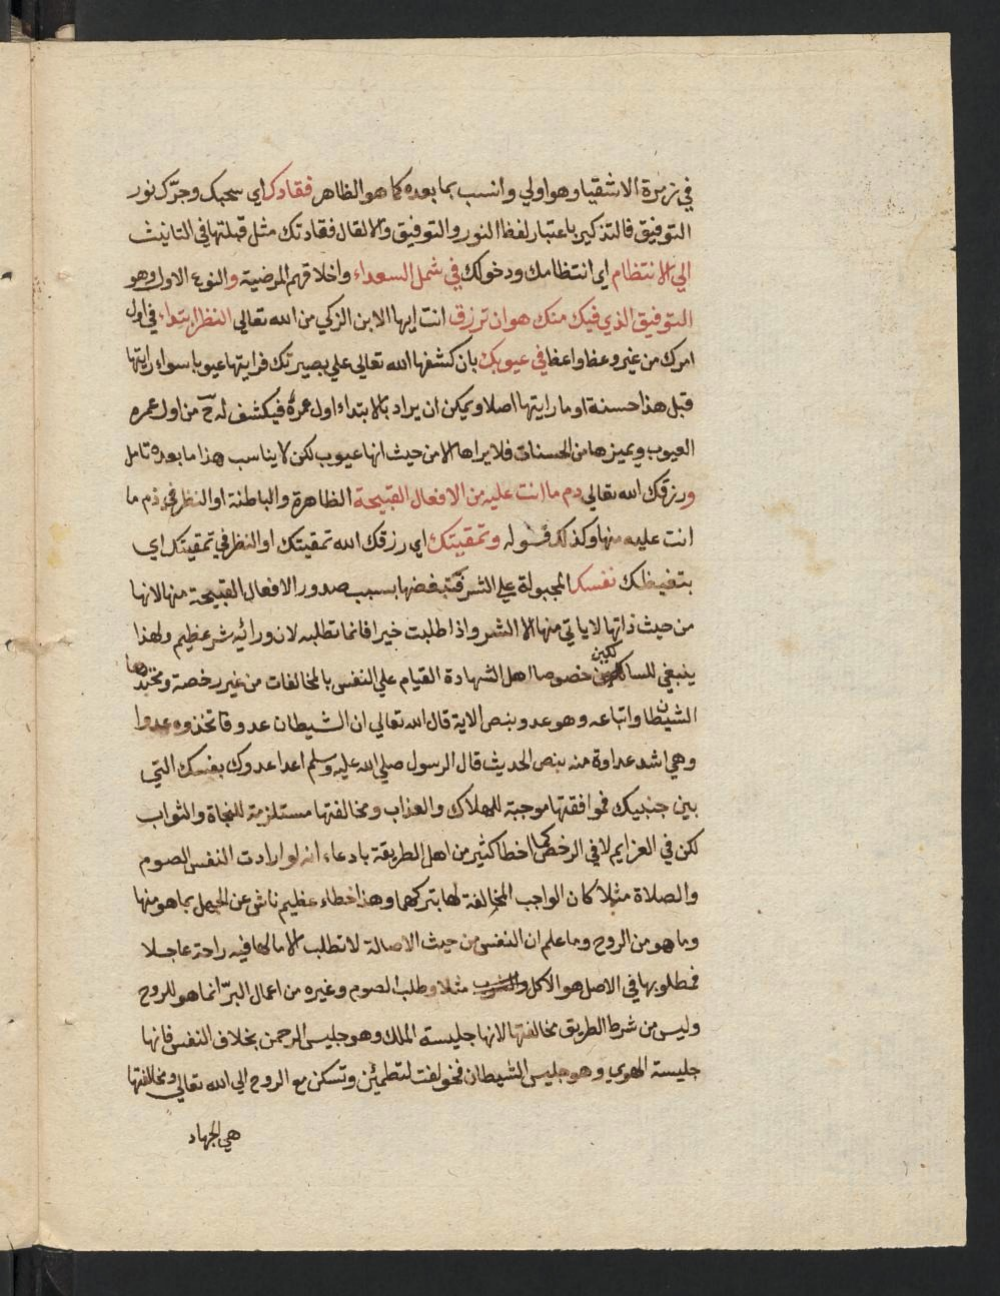 في زمرة الاشقيا وهو اولي وانسب بما بعده كما هو الظاهر فقادك اي سحبك وجرّك نور
التوفيق فالتذكير باعتبار لفظ النور والتوفيق والا لقال فقادتك مثل قبلتها في التانيث
الي الانتظام اي انتظامك ودخولك في شمل السعداء واخلاقهم المرضية والنوع الاول وهو
التوفيق الذي فيك منك هو ان ترزق انت ايها الابن الزكي من الله تعالي النظر ابتداء في اول
امرك من غير وعظ واعظ في عيوبك بان كشفها الله تعالي علي بصيرتك فرايتها عيوبا سواء رايتها
قبل هذا حسنة او ما رايتها اصلا ويمكن ان يراد بالابتداء اول عمره فيكشف له ح من اول عمره
العيوب ويميزها من الحسنات فلا يراها الا من حيث انها عيوب لكن لا يناسب هذا ما بعده تامل
ورزقك الله تعالي ذم ما انت عليه من الافعال القبيحة الظاهرة والباطنة او النظر في ذم ما
انت عليه منها وكذلك قوله وتمقيتك اي رزقك الله تمقيتك او النظر في تمقيتك اي
بتغيظك نفسك المجبولة علي الشر فتبغضها بسبب صدور الافعال القبيحة منها لانها
من حيث ذاتها لا ياتي منها الا الشر واذا طلبت خيرا فانما تطلبه لان ورائه شر عظيم ولهذا
ينبغي للسالكين خصوصا اهل الشهادة القيام علي النفس بالمخالفات من غير رخصة
الشيطان واتباعه وهو عدو بنص الاية قال الله تعالي ان الشيطان عدو فاتخذوه عدوا
وهي اشد عداوة منه بنص الحديث قال الرسول صلي الله عليه وسلم اعدا عدوك نفسك التي
بين جنبيك فموافقتها موجبة للهلاك والعذاب ومخالفتها مستلزمة للنجاة والثواب
لكن في العزايم لا في الرخص كما اخطا كثير من اهل الطريقة بادعاء انه لو ارادت النفس الصوم
والصلاة مثلا كان الواجب المخالفة لها بتركهما وهذا خطاء عظيم ناش عن الجهل بما هو منها
وما هو من الروح وما علم ان النفس من حيث الاصالة لا تطلب الا ما لها فيه راحة عاجلا
فمطلوبها في الاصل هو الاكل والشرب مثلا وطلب الصوم وغيره من اعمال البرّ انما هو للروح
وليس من شرط الطريق مخالفتها لانها جليسة الملك وهو جليس الرحمن بخلاف النفس فانها
جليسة الهوي وهو جليس الشيطان فخولفت لتطمئن وتسكن مع الروح الي الله تعالي ومخالفتها
هي الجهاد